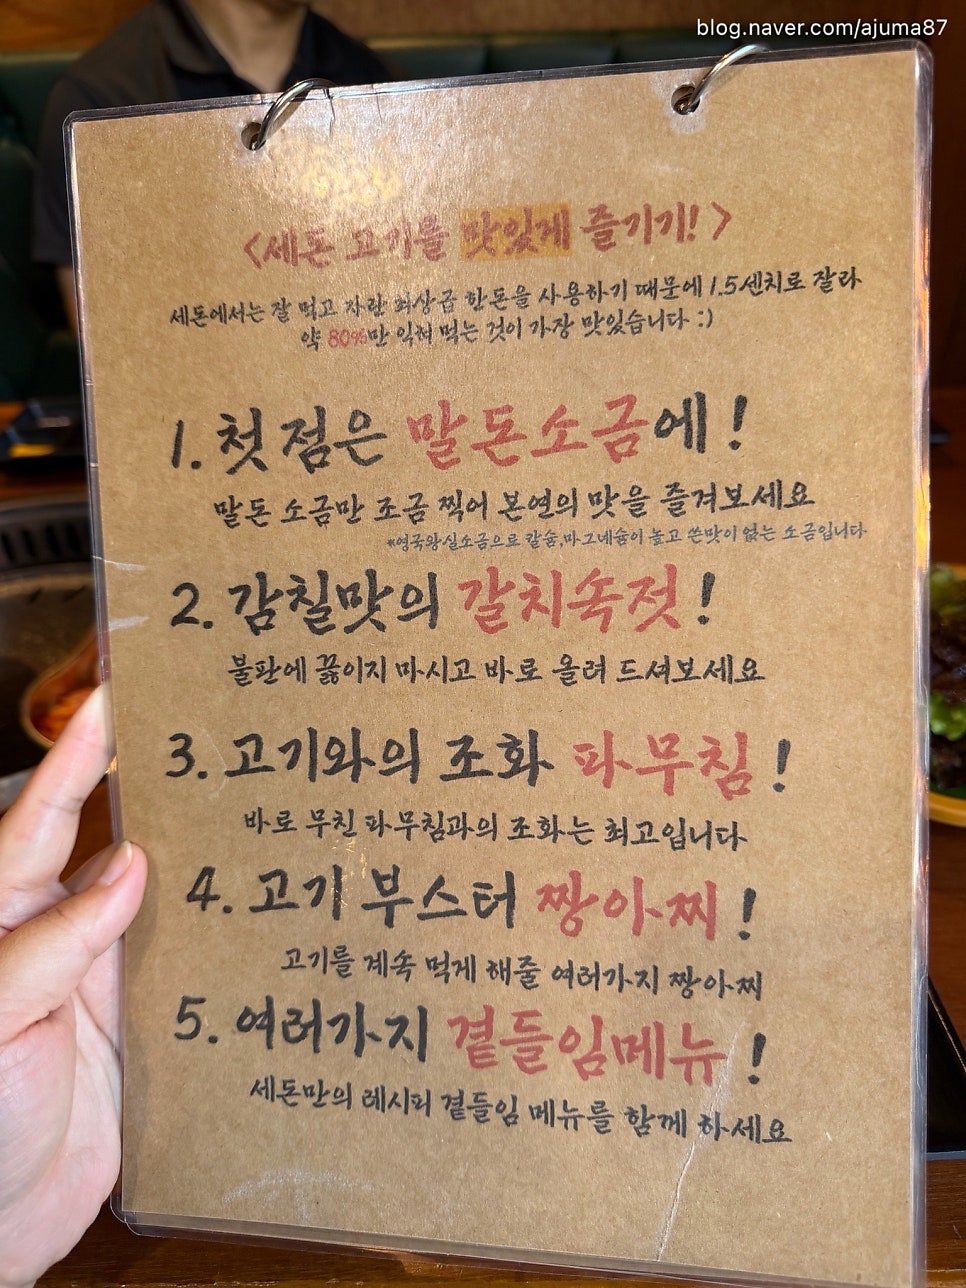 blog.naver.com/ajuma87
<세돈 고기를 맛있게 즐기기!>
세돈에서는 잘 먹고 자란 최상급 한돈을 사용하기 때문에 1.5센치로 잘라
약 80%만 익혀 먹는 것이 가장 맛있습니다 :)
1. 첫 점은 말돈소금에!
말돈 소금만 조금 찍어 본연의 맛을 즐겨보세요
*영국왕실소금으로 칼슘,마그네슘이 높고 쓴맛이 없는 소금입니다
2. 감칠맛의 갈치속젓!
불판에 끓이지 마시고 바로 올려 드셔보세요
3. 고기와의 조화 파무침!
바로 무친 파무침과의 조화는 최고입니다
4. 고기 부스터 짱아찌!
고기를 계속 먹게 해줄 여러가지 짱아찌
5. 여러가지 곁들임메뉴!
세돈만의 레시피 곁들임 메뉴를 함께 하세요